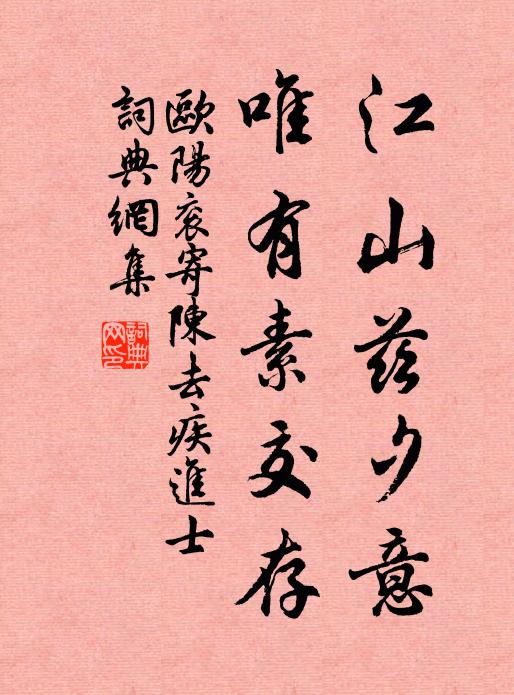 江山茲夕意
唯有素交存
歐陽袞寄陳去疾進士
詞典網集
詞典網印